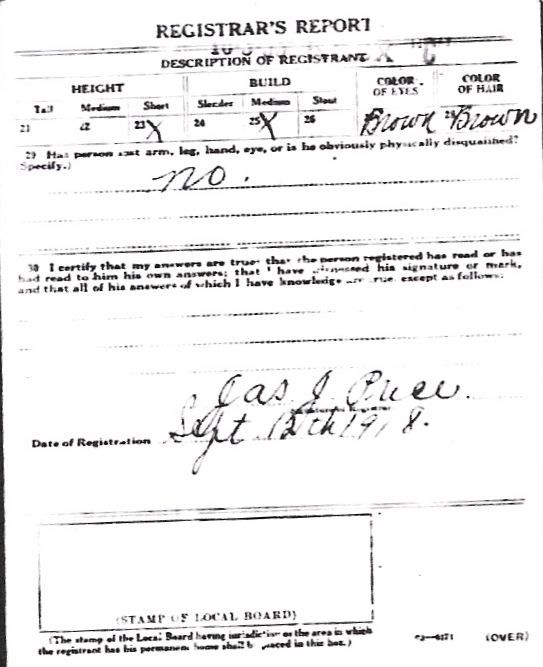 REGISTRAR'S REPORT
DESCRIPTION OF REGISTRANT
HEIGHT BUILD COLOR OF EYES COLOR OF HAIR
Tall Medium Short Slender Medium Stout
21 22 23 X 24 25 X 26 Brown 28 Brown
29 Has person lost arm, leg, hand, eye, or is he obviously physically disqualified?
Specify.)
no.
30 I certify that my answers are true; that the person registered has read or has
had read to him his own answers; that I have witnessed his signature or mark,
and that all of his answers of which I have knowledge are true, except as follows:
Jas J. Price.
Date of Registration Sept 12th 1918.
(STAMP OF LOCAL BOARD)
(The stamp of the Local Board having jurisdiction of the area in which
the registrant has his permanent home shall be placed in this box.)
(OVER)